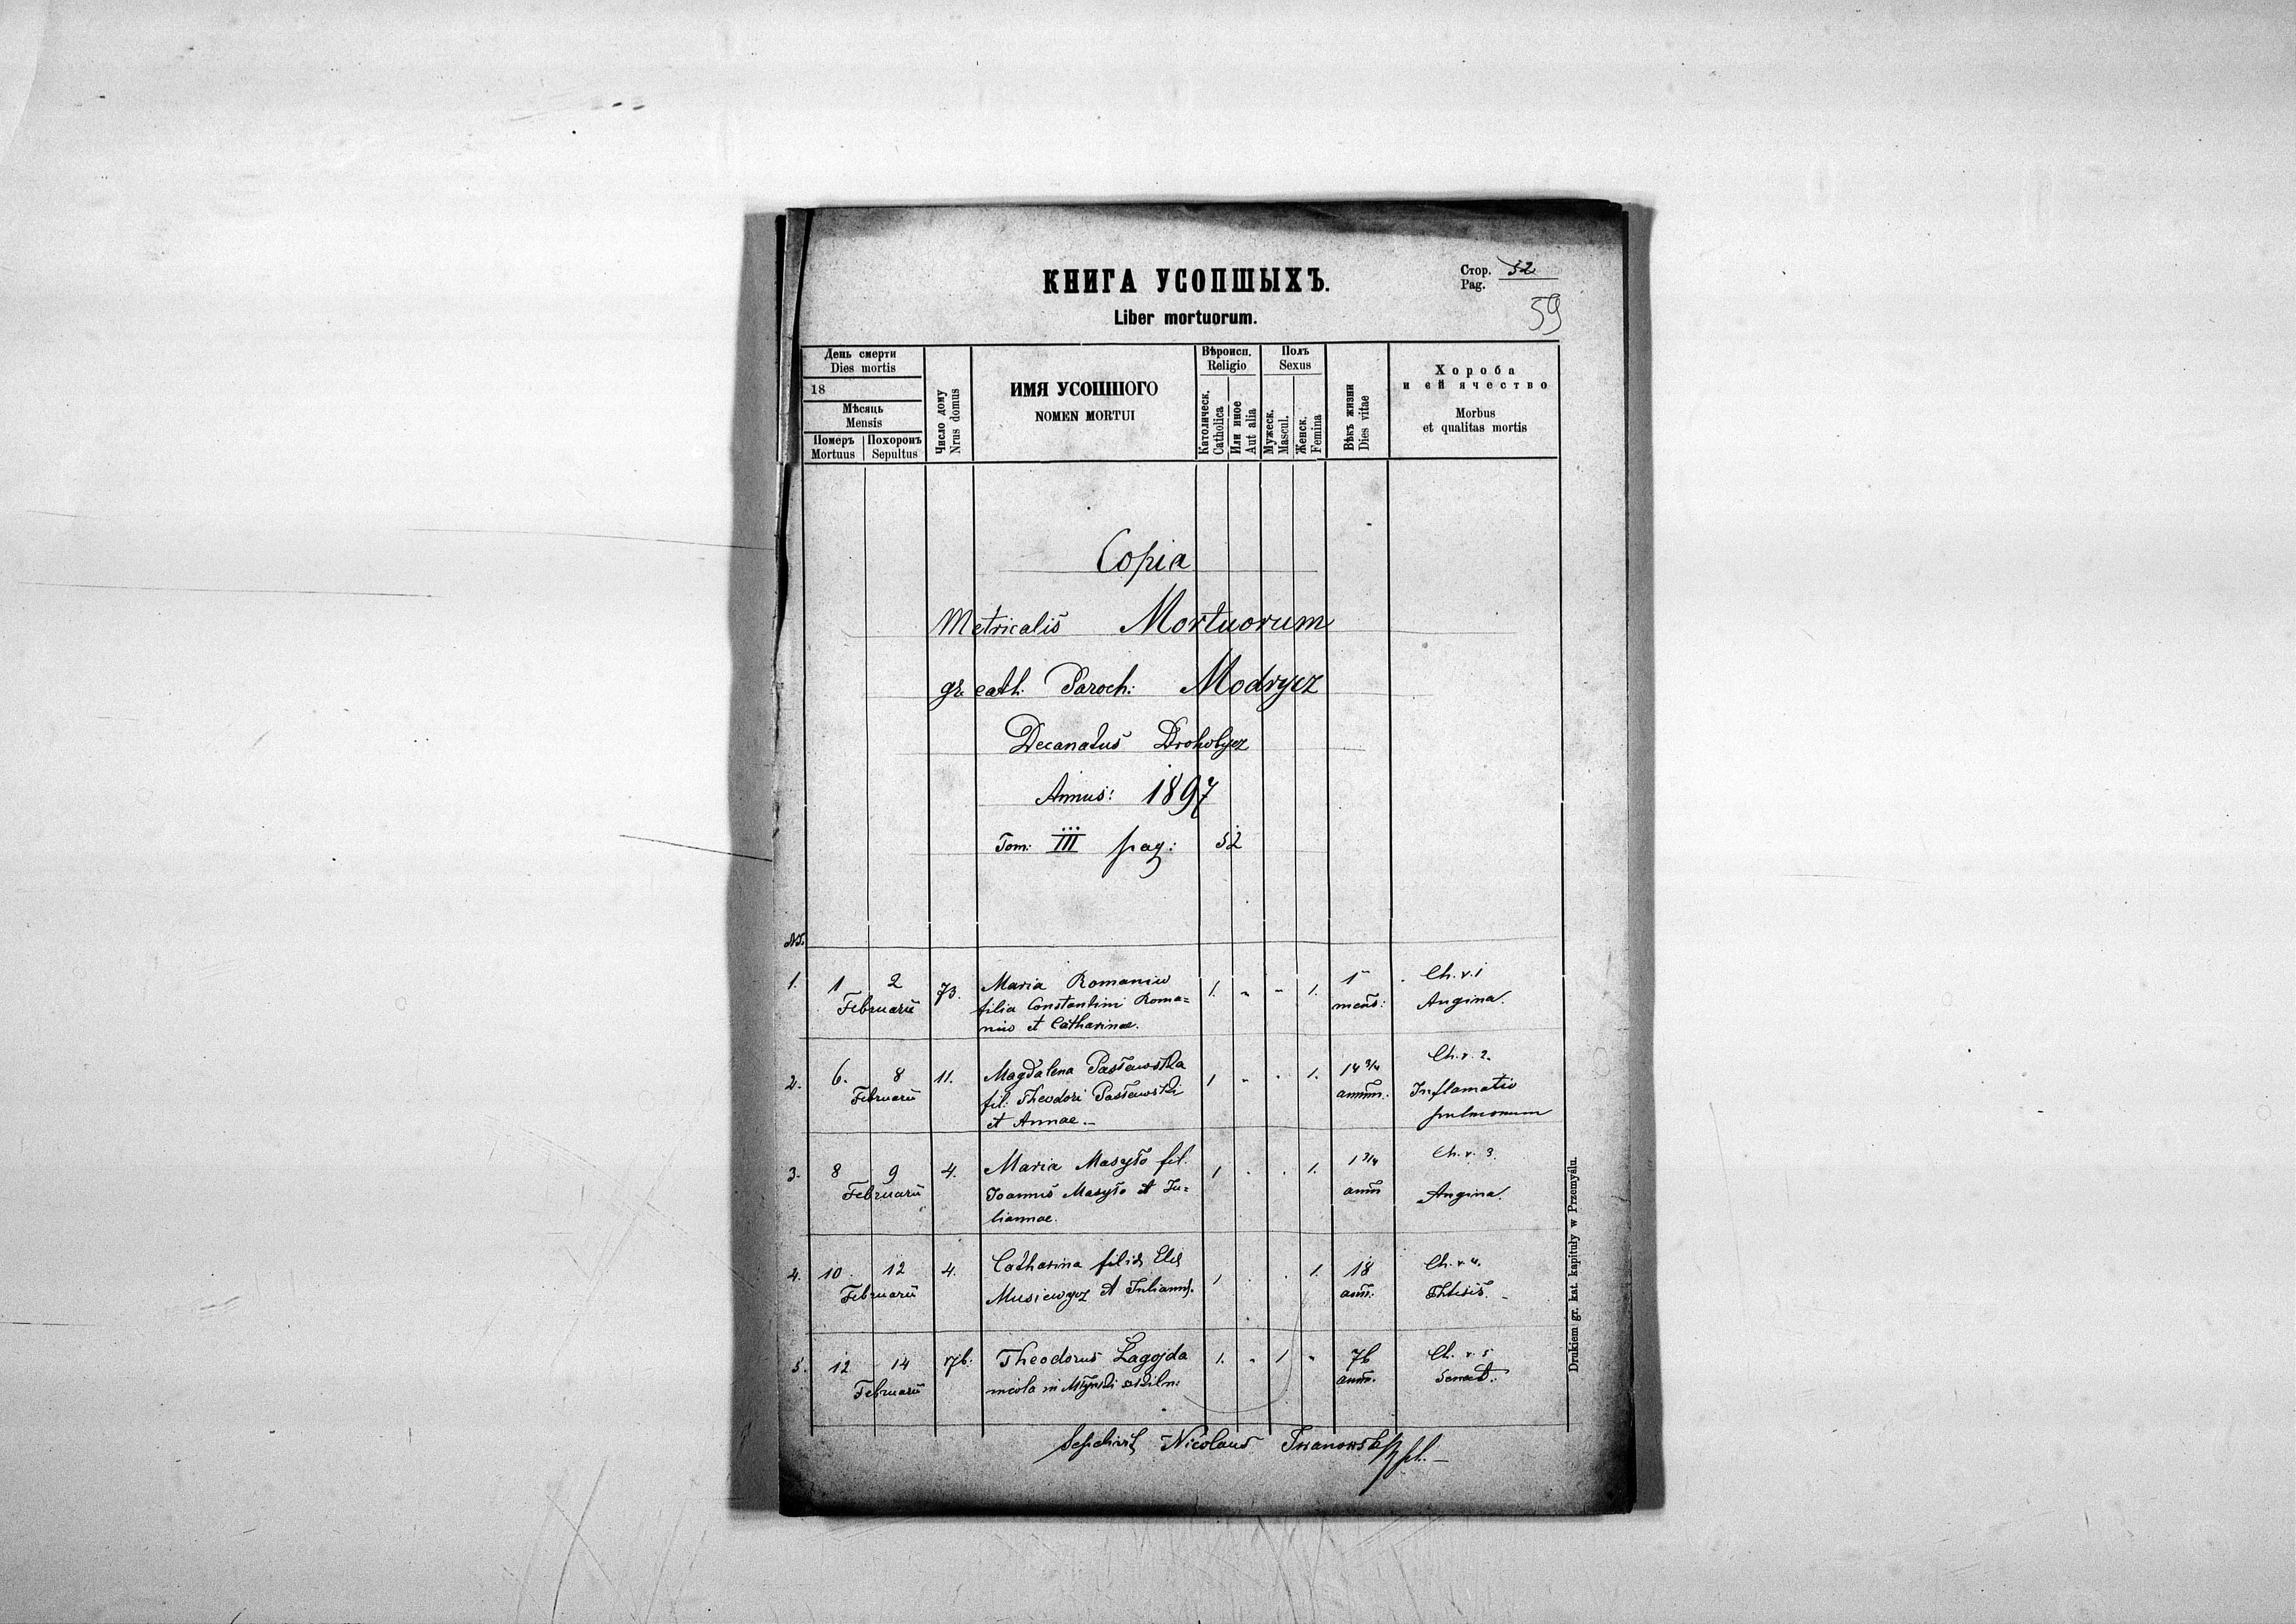 КНИГА УСОПШЫХЪ.
Liber mortuorum.
Стор. 52
Pag.
59
День смерти
Dies mortis
18
Мѣсяць
Mensis
Померъ Похоронъ
Mortuus Sepultus
Число дому
Nrus domus
ИМЯ УСОПШОГО
NOMEN MORTUI
Вѣроисп.
Religio
Католическ.
Catholica
Или иное
Aut alia
Полъ
Sexus
Мужеск.
Mascul.
Женск.
Femina
Вѣкъ жизни
Dies vitae
Хороба
и ей ячество
Morbus
et qualitas mortis
Copia
Metricalis Mortuorum
gr. cath. Paroch: Modrycz
Decanatus Drohobycz
Annus: 1897
Tom: III pag: 52
1. 1 2 Februarii 73.
Maria Romaniw
filia Constantini Roma=
niw et Catharinae.
1. " " 1.
1 mens:
Ch. v. 1
Angina.
2. 6. 8 Februarii 11.
Magdalena Pasławska
fil: Theodori Pasławski
et Annae.
1 " . 1.
14 3/4
annor.
Ch. v. 2.
Inflamatio
pulmonum
3. 8 9 Februarii 4.
Maria Masyło fil.
Joannis Masyło et Ju=
liannae.
1 . . 1.
1 3/4
Ch. v. 3.
Angina.
4. 10 12 Februarii 4.
Catharina filia
Musiewycz et
1 . . 1.
18
Ch. v. 4.
Phtisis.
5. 12 14 Februarii 76.
Theodorus Łagojda
1. " 1 "
76
Ch. v. 5
Senect.
Sepelivit Nicolaus Iwanowski
Drukiem gr. kat. kapituły w Przemyślu.